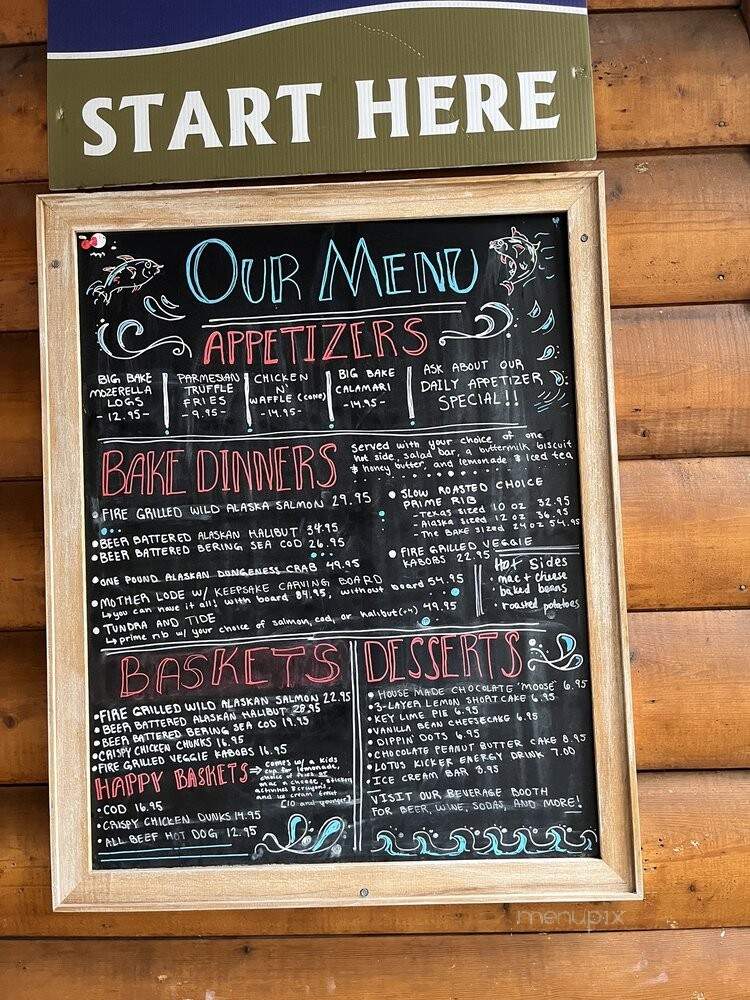 START HERE
OUR MENU
APPETIZERS
BIG BAKE
MOZERELLA
LOGS
- 12.95 -
PARMESIAN
TRUFFLE
FRIES
- 9.95 -
CHICKEN
N'
WAFFLE (CONE)
- 14.95 -
BIG BAKE
CALAMARI
- 14.95 -
ASK ABOUT OUR
DAILY APPETIZER
SPECIAL!!
BAKE DINNERS
Served with your choice of one
hot side, salad bar, a buttermilk biscuit
& honey butter, and lemonade & iced tea
• FIRE GRILLED WILD ALASKA SALMON 29.95
• BEER BATTERED ALASKAN HALIBUT 34.95
• BEER BATTERED BERING SEA COD 26.95
• ONE POUND ALASKAN DUNGENESS CRAB 49.95
• MOTHER LODE W/ KEEPSAKE CARVING BOARD
↳ you can have it all! with board 84.95, without board 54.95
• TUNDRA AND TIDE
↳ prime rib w/ your choice of salmon, cod, or halibut (+4) 49.95
• SLOW ROASTED CHOICE
PRIME RIB
- Texas sized 10 oz 32.95
- Alaska sized 12 oz 36.95
- The Bake sized 24 oz 54.95
• FIRE GRILLED VEGGIE
KABOBS 22.95
Hot Sides
• mac & cheese
• baked beans
• roasted potatoes
BASKETS
• FIRE GRILLED WILD ALASKAN SALMON 22.95
• BEER BATTERED ALASKAN HALIBUT 28.95
• BEER BATTERED BERING SEA COD 19.95
• CRISPY CHICKEN CHUNKS 16.95
• FIRE GRILLED VEGGIE KABOBS 16.95
HAPPY BASKETS
→ comes w/ a kids
cup for lemonade,
choice of
mac & cheese,
activities & crayons,
and ice cream
(10 and younger)
• COD 16.95
• CRISPY CHICKEN DUNKS 14.95
• ALL BEEF HOT DOG 12.95
DESSERTS
• HOUSE MADE CHOCOLATE "MOOSE" 6.95
• 3-LAYER LEMON SHORTCAKE 6.95
• KEY LIME PIE 6.95
• VANILLA BEAN CHEESECAKE 6.95
• DIPPIN' DOTS 6.95
• CHOCOLATE PEANUT BUTTER CAKE 8.95
• LOTUS KICKER ENERGY DRINK 7.00
• ICE CREAM BAR 3.95
VISIT OUR BEVERAGE BOOTH
FOR BEER, WINE, SODAS, AND MORE!
menupix